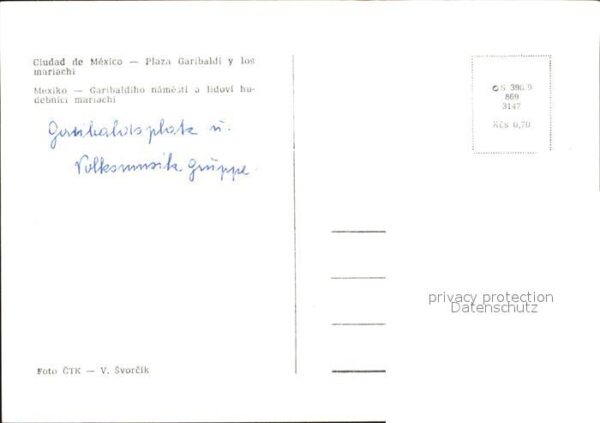 Ciudad de México — Plaza Garibaldi y los
mariachi
Mexiko — Garibaldiho náměstí a lidoví hu-
debníci mariachi
Garibaldisplatz u.
Volksmusik Gruppe.
Foto ČTK — V. Švorčík
S 396.9
869
3147
Kčs 0,70
privacy protection
Datenschutz